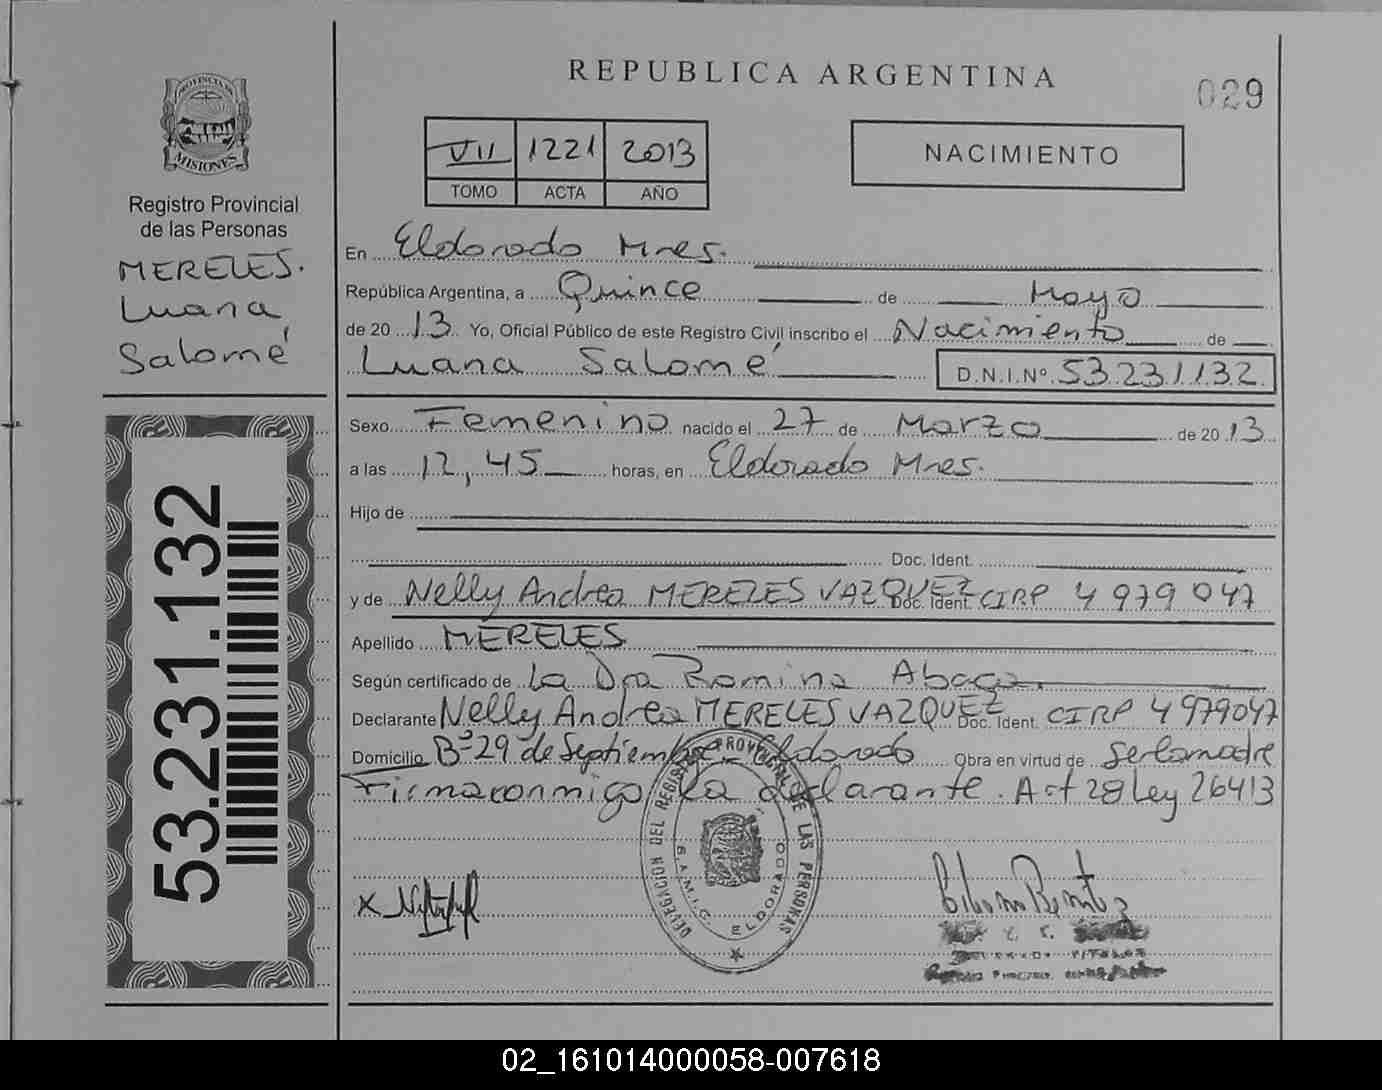 REPUBLICA ARGENTINA
029
PROVINCIA DE
MISIONES
Registro Provincial
de las Personas
MERELES.
Luana
Salomé
53.231.132
VII 1221 2013
TOMO ACTA AÑO
NACIMIENTO
En Eldorado Mnes.
República Argentina, a Quince de Mayo
de 20 13 Yo, Oficial Público de este Registro Civil inscribo el Nacimiento de
Luana Salomé D.N.I.Nº. 53.231.132
Sexo Femenino nacido el 27 de Marzo de 20 13
a las 12,45 horas, en Eldorado Mnes.
Hijo de
Doc. Ident.
y de Nelly Andrea MERELES VAZQUEZ Doc. Ident. CIRP 4 979 047
Apellido MERELES
Según certificado de La Dra Romina
Declarante Nelly Andrea MERELES VAZQUEZ Doc. Ident. CIRP 4 979047
Domicilio Bº 29 de Septiembre Eldorado Obra en virtud de ser la madre
Firma conmigo la declarante. Art 28 Ley 26413
DELEGACION DEL REGISTRO PROVINCIAL DE LAS PERSONAS
ELDORADO
02_161014000058-007618